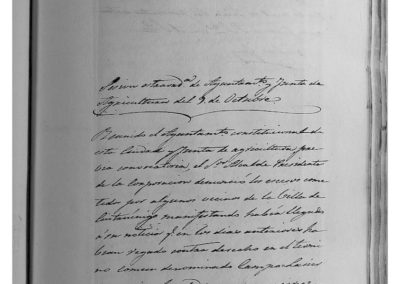 Sesion extraord.ª de Ayuntamt.º y Junta de
Agricultura del 9 de Octubre.
Reunido el Ayuntamiento constitucional de
esta Ciudad y Junta de agricultura, pre
via convocatoria, el Sr. Alcalde Presidente
de la Corporacion denunció los escesos come
tidos por algunos vecinos de la Villa de
manifestando habia llegado
á su noticia q.e en los dias anteriores ha
bian segado contra derecho en el térmi
no comun denominado